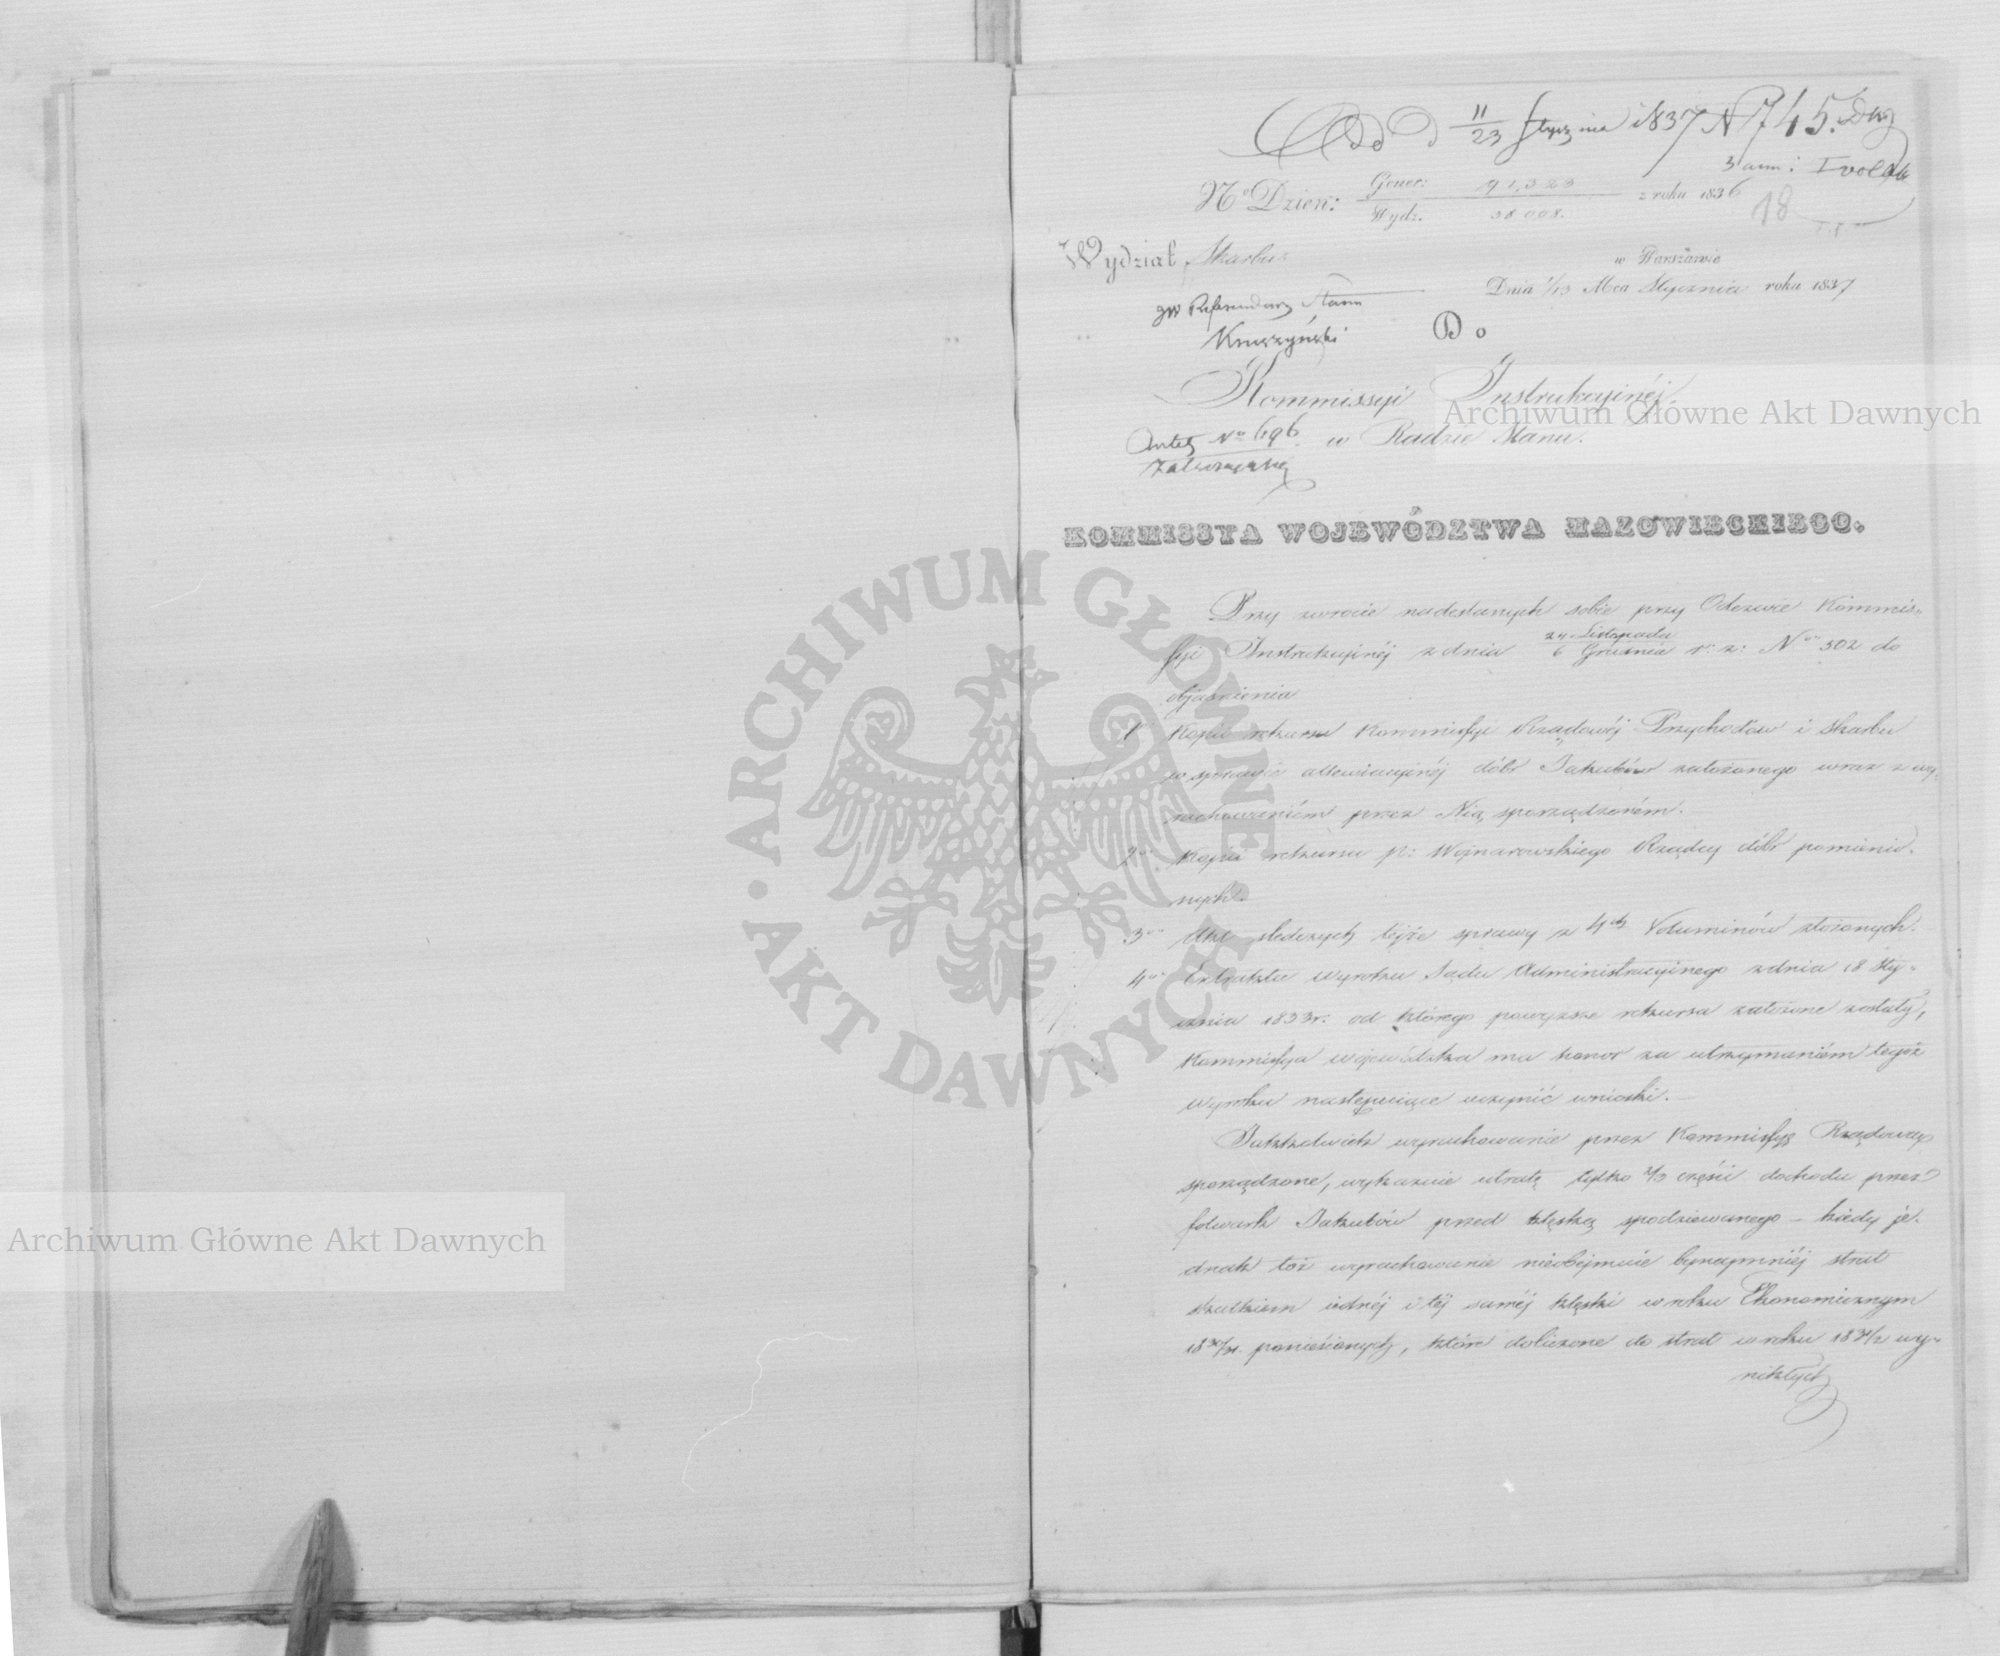 Odd d 11/23 Stycznia 1837 N 745. Dz
3 ann: I vol akt
No Dzien: Gener: 91,323 z roku 1836
Wydz. 38008.
18
Wydział Skarbu
w Warszawie
Dnia 1/13 Mca Stycznia roku 1837
JW Referendarz Stanu
Kruszyński
Do
Kommissyi Instrukcyjnéj
w Radzie Stanu.
No 696
KOMMISSYA WOJEWÓDZTWA MAZOWIECKIEGO.
Przy zwrocie nadesłanych sobie przy Odezwie Kommis-
syi Instrukcyjnéj z dnia 24 Listopada / 6 Grudnia r: z: No 502 do
objaśnienia
1o Kopii rekursu Kommissyi Rządowéj Przychodów i Skarbu
w sprawie allewiacyjnéj dóbr Jakubów założonego wraz z wy-
rachowaniem przez Nią sporządzoném.
2o Kopii rekursu p: Wojnarowskiego Rządcy dóbr pomienio-
nych.
3o Akt śledczych téjże sprawy z 4ch Voluminów złożonych.
4o Extraktu wyroku Sądu Administracyjnego z dnia 18 Sty-
cznia 1833r. od którego powyższe rekursa założone zostały,
Kommissya Wojewódzka ma honor za utrzymaniem tegoż
wyroku następujące uczynić wnioski.
Jakkolwiek wyrachowanie przez Kommissyą Rządową
sporządzone, wykazuie utratę tylko 2/3 części dochodu przez
folwark Jakubów przed klęską spodziewanego – kiedy je-
dnak toż wyrachowanie nieobejmuie bynajmniéj strat
skutkiem iednéj i téj saméj klęski w roku Ekonomicznym
1830/31. poniesionych, które doliczone do strat w roku 1831/2 wy-
nikłych
Archiwum Główne Akt Dawnych
Archiwum Główne Akt Dawnych
· ARCHIWUM GŁÓWNE · AKT DAWNYCH